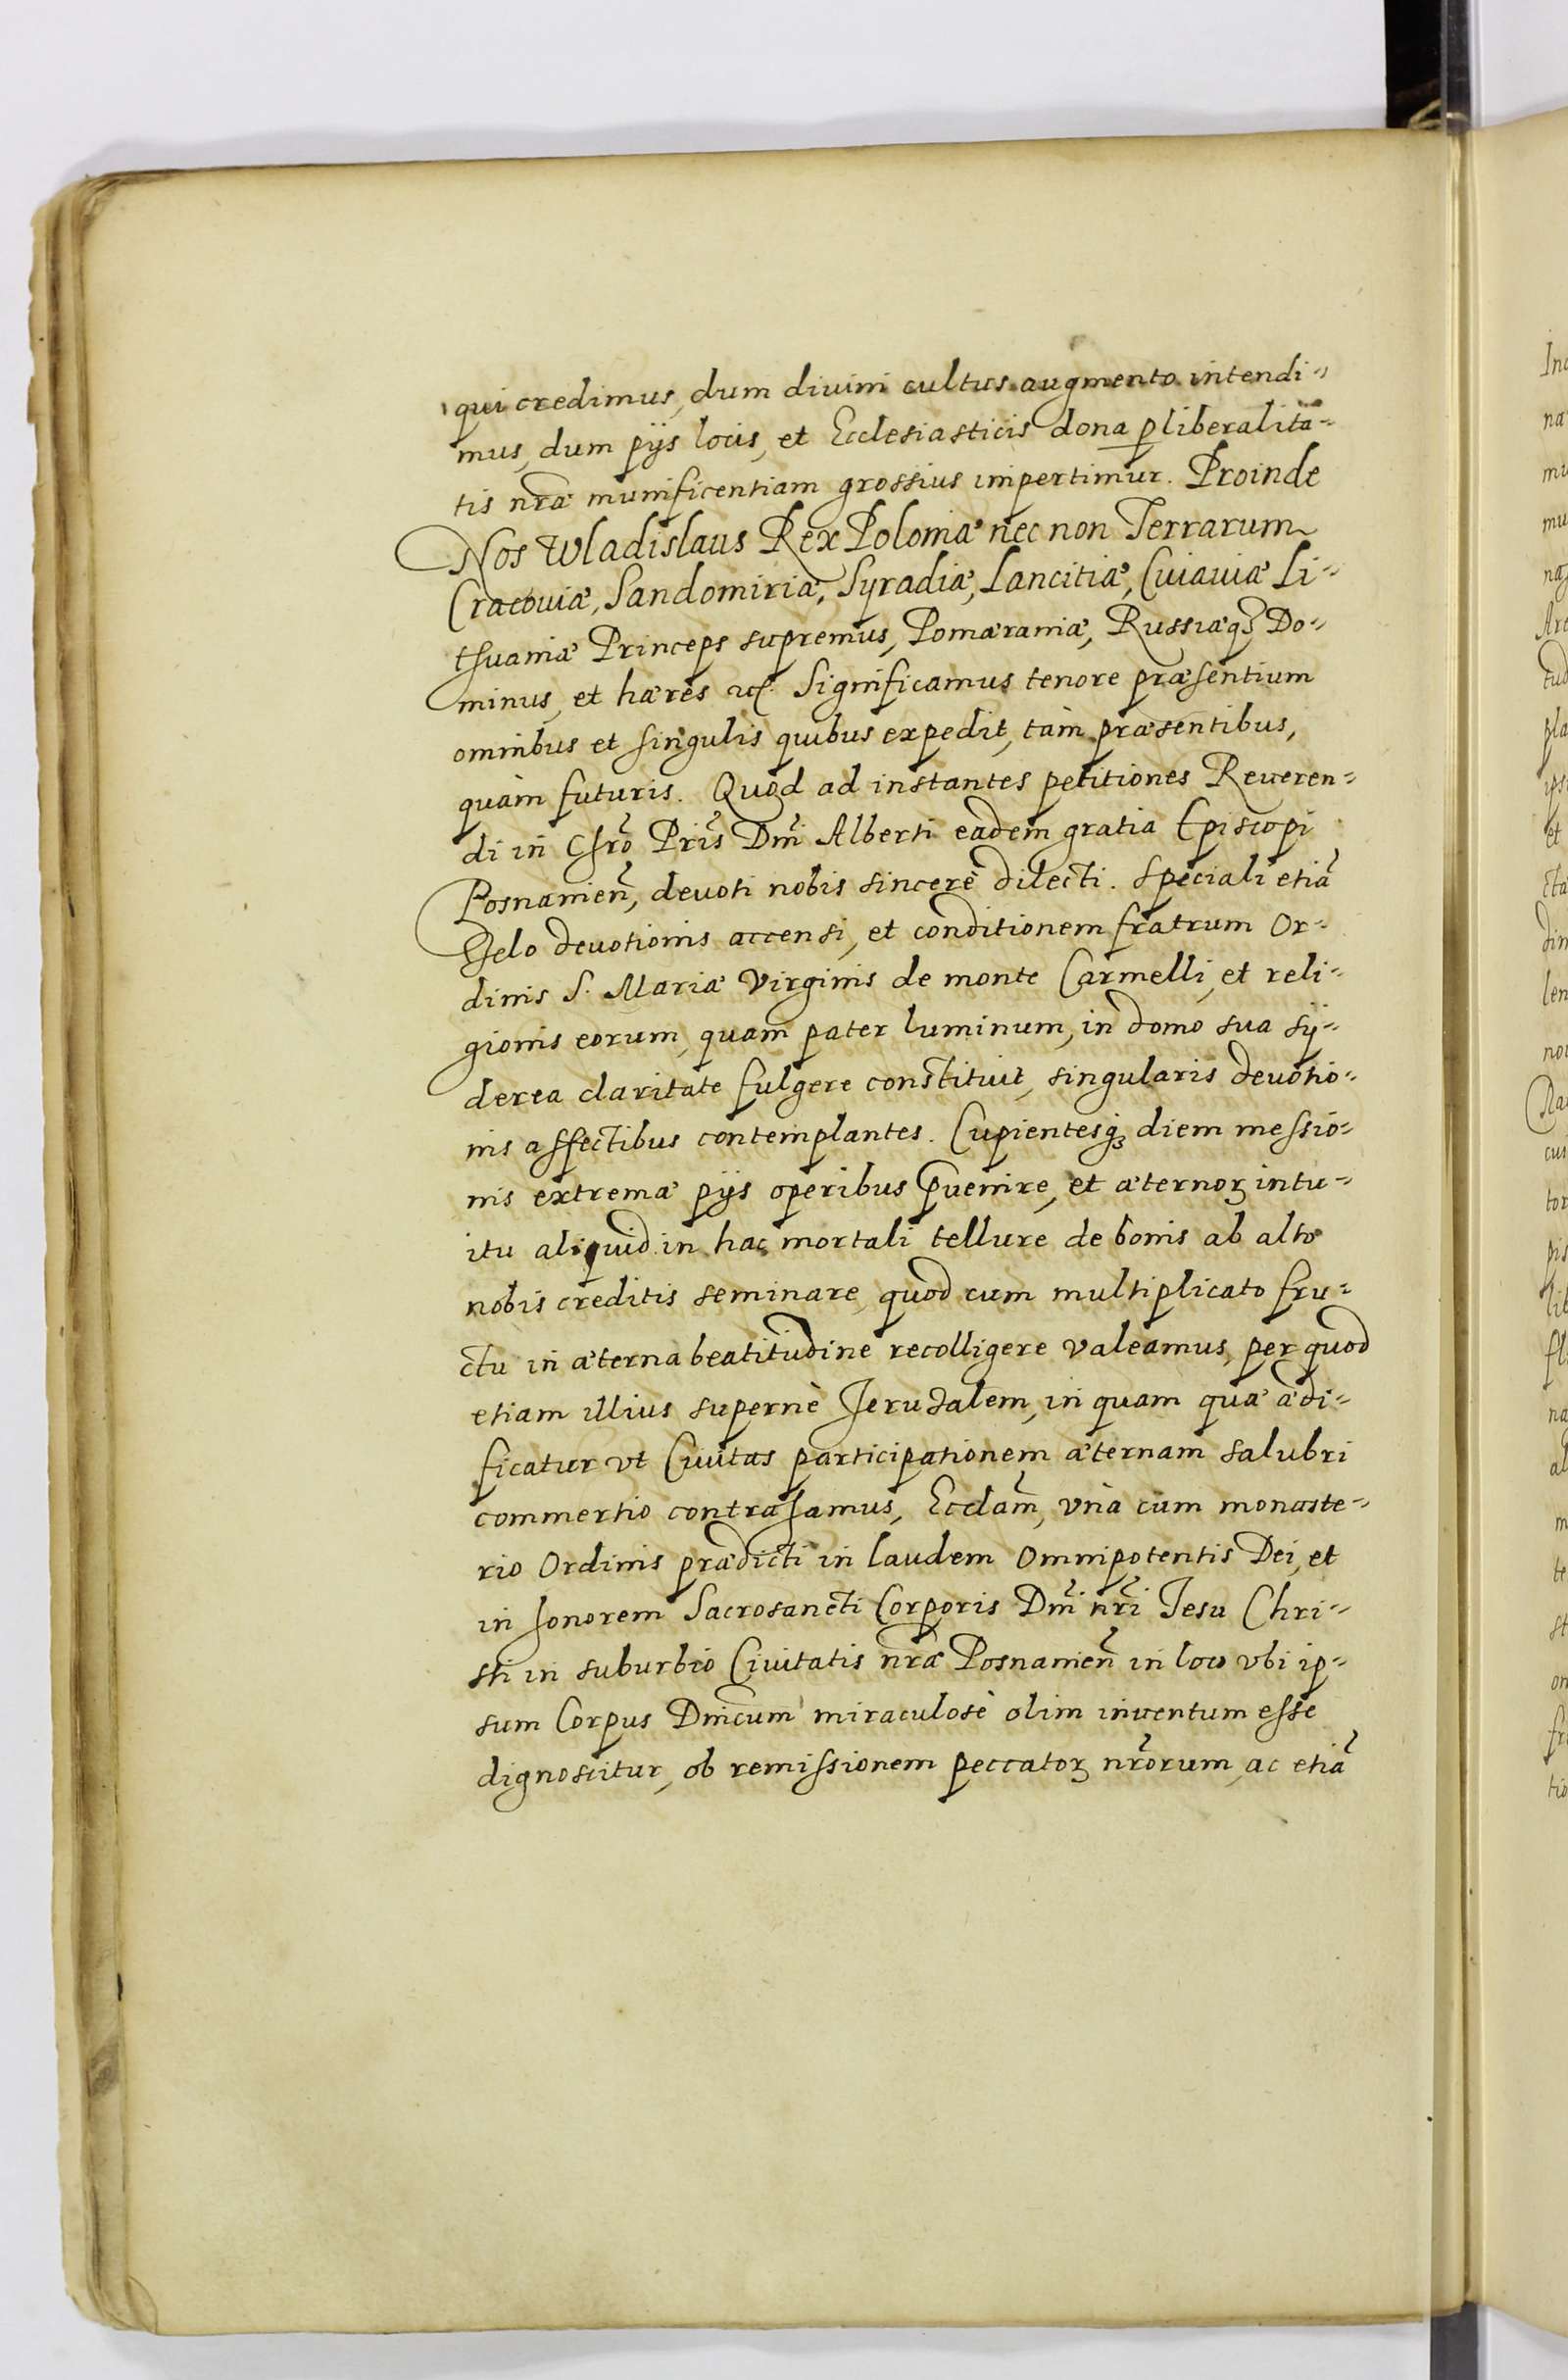 qui credimus, dum divini cultus augmento intendi-
mus, dum pijs locis, et Ecclesiasticis dona p liberalita-
tis nr̃æ munificentiam grossius impertimur. Proinde
Nos Wladislaus Rex Poloniæ nec non Terrarum
Cracoviæ, Sandomiriæ, Syradiæ, Lancitiæ, Cuiaviæ Li-
thvaniæ Princeps supremus, Pomæraniæ, Russiæq3 Do-
minus, et hæres Significamus tenore præsentium
omnibus et singulis quibus expedit, tàm præsentibus,
quàm futuris. Quod ad instantes petitiones Reveren-
di in Chr̃o Pr̃is Dñi Alberti eadem gratia Episcopi
Posnanień, devoti nobis sincerè dilecti. Speciali etiã
Zelo devotionis accensi, et conditionem fratrum Or-
dinis S. Mariæ Virginis de monte Carmelli, et reli-
gionis eorum, quam pater luminum, in domo sua sy-
derea claritate fulgere constituit, singularis devotio-
nis affectibus contemplantes. Cupientesq3 diem messio-
nis extremæ pijs operibus p̃venire, et æternoꝝ intu-
itu aliquid in hac mortali tellure de bonis ab alto
nobis creditis seminare quod cum multiplicato fru-
ctu in æterna beatitudine recolligere valeamus, per quod
etiam illius supernè Jerusalem, in quam quæ ædi-
ficatur vt Civitas participationem æternam salubri
commertio contrahamus, Eccl̃am, vnà cùm monaste-
rio Ordinis prædicti in laudem Omnipotentis Dei, et
in honorem Sacrosancti Corporis Dñi nr̃i Jesu Chri-
sti in suburbio Civitatis nr̃æ Posnanieñ in loco vbi ip-
sum Corpus Dñicum miraculosè olim inventum esse
dignoscitur, ob remissionem peccatoꝝ nr̃orum, ac etiã